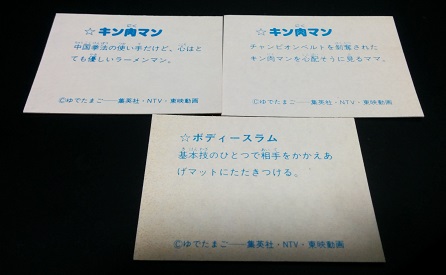 ☆キン肉マン
中国拳法の使い手だけど、心はと
ても優しいラーメンマン。
©ゆでたまご——集英社・NTV・東映動画
☆キン肉マン
チャンピオンベルトを剝奪された
キン肉マンを心配そうに見るママ。
©ゆでたまご——集英社・NTV・東映動画
☆ボディースラム
基本技のひとつで相手をかかえあ
げマットにたたきつける。
©ゆでたまご——集英社・NTV・東映動画